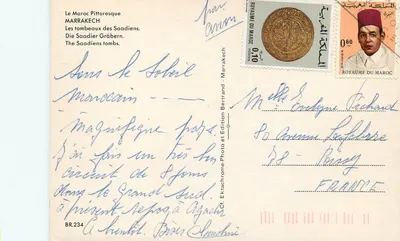 Le Maroc Pittoresque
MARRAKECH
Les tombeaux des Saadiens.
Die Saadier Gräbern.
The Saadiens tombs.
Sous le Soleil
Marocain ——
Magnifique pays.
J'ai fais un très bon
circuit de 8 jours
dans le Grand Sud.
à présent repos à Agadir
A bientôt. Bises
BR.234
Ektachrome Photo et Edition Bertrand - Marrakech
par
avion
ROYAUME DU MAROC
0,10
المملكة المغربية
0,60
ROYAUME DU MAROC
Melle Evelyne Pichard
80 Avenue Lefebvre
78 - Poissy
FRANCE